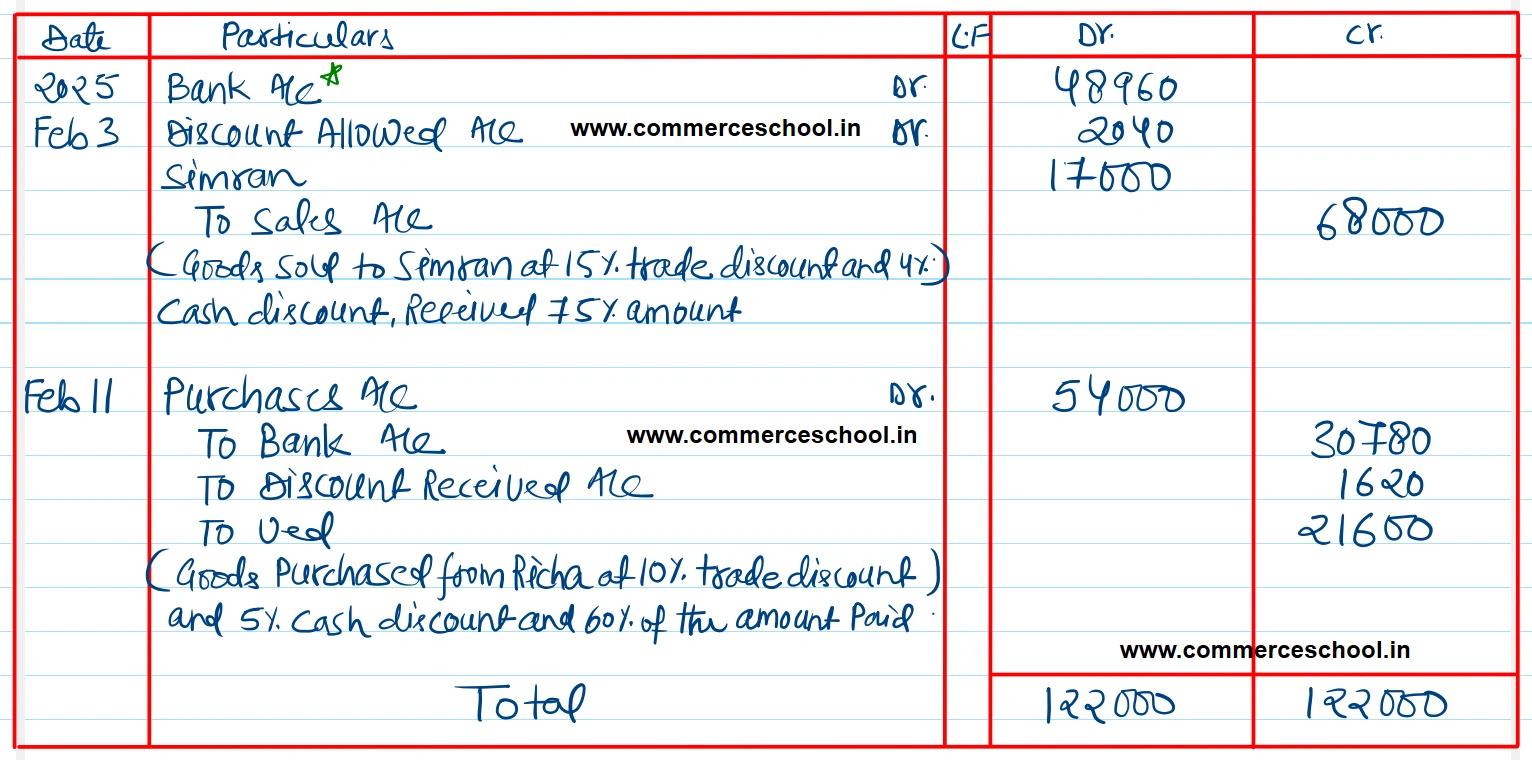 Date Particulars L.F Dr. Cr.
2025 Bank A/c* Dr. 48960
Feb 3 Discount Allowed A/c www.commerceschool.in Dr. 2040
Simran 17000
To Sales A/c 68000
(Goods sold to Simran at 15% trade discount and 4%)
Cash discount, Received 75% amount
Feb 11 Purchases A/c Dr. 54000
To Bank A/c www.commerceschool.in 30780
To Discount Received A/c 1620
To Ved 21600
(Goods Purchased from Richa at 10% trade discount)
and 5% Cash discount and 60% of the amount Paid.
www.commerceschool.in
Total 122000 122000